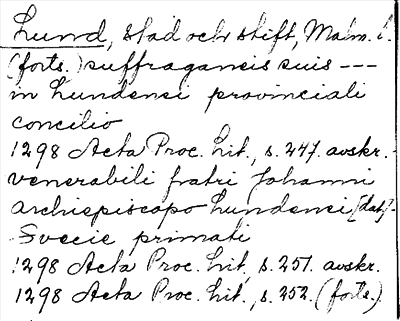 Lund, stad och stift, Malm. l.
(forts.) suffraganeis suis ---
in Lundensi provinciali
concilio
1298 Acta Proc. Lit., s. 247. avskr.
venerabili fratri Johanni
archiepiscopo Lundensi [dat]
Svecie primati
1298 Acta Proc. Lit., s. 251. avskr.
1298 Acta Proc. Lit., s. 252. (forts.)